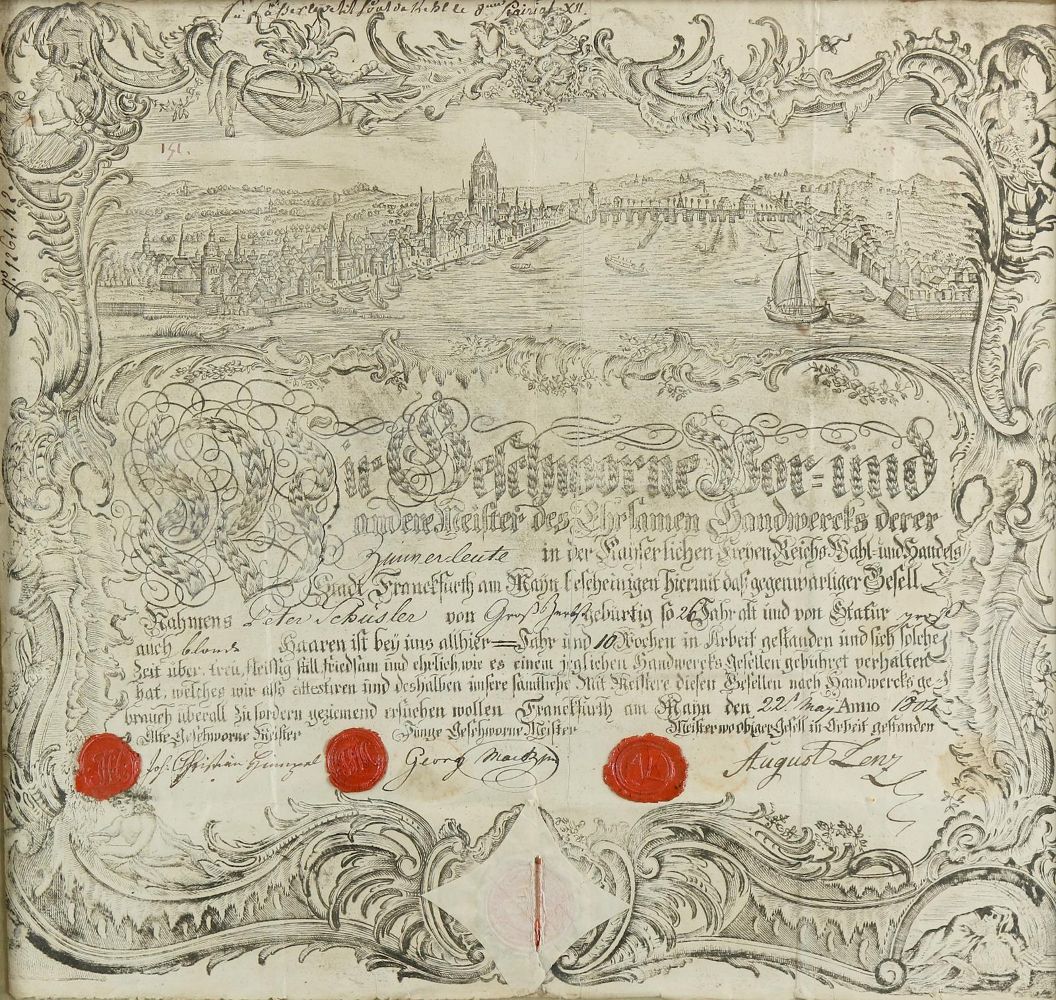 XII
151.
No 1264.
Wir Geschworne Vor= und
andere Meister des Ehrsamen Handwercks derer
in der Kayserlichen Freyen Reichs Wahl- und Handels
Stadt Franckfurth am Mayn bescheinigen hiermit daß gegenwärtiger Gesell
Nahmens Peter Schüsler von Groß gebürtig so 26 Jahr alt und von Statur
auch blonde Haaren ist bey uns allhier = Jahr und 10 Wochen in Arbeit gestanden und sich solche
Zeit über treu, fleissig still friedsam und ehrlich, wie es einem jeglichen Handwercks Gesellen gebühret verhalten
hat, welches wir also attestiren und deshalben unsere sämtliche Mit Meistere diesen Gesellen nach Handwercks ge=
brauch überall zu fordern geziemend ersuchen wollen Franckfurth am Mayn den 22 May Anno 1804
Alte Geschworne Meister Junge Geschworne Meister Meister wo obiger Gesell in Arbeit gestanden
Christian Georg August Lenz